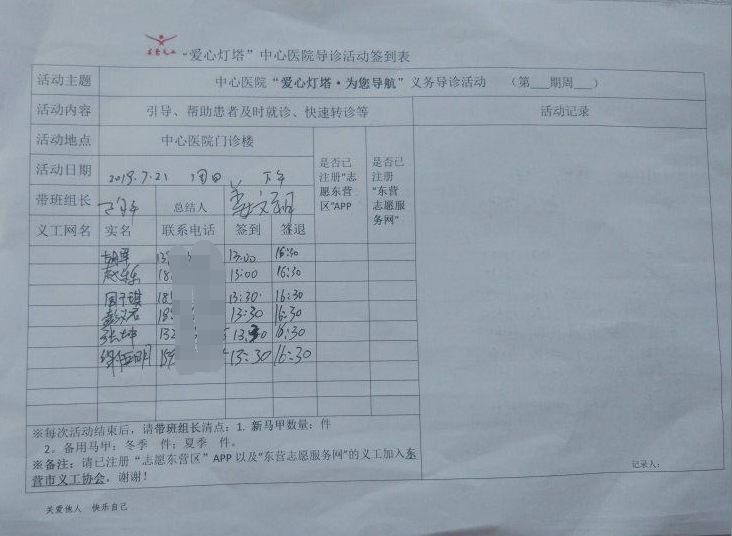 “爱心灯塔”中心医院导诊活动签到表
活动主题 中心医院“爱心灯塔·为您导航”义务导诊活动 （第___期周___）
活动内容 引导、帮助患者及时就诊、快速转诊等 活动记录
活动地点 中心医院门诊楼 是否已注册“志愿东营区”APP 是否已注册“东营志愿服务网”
活动日期 2019.7.21 周日 下午
带班组长 总结人
义工网名 实名 联系电话 签到 签退
13:00 16:30
15:00 16:30
周子琪 18 13:30 16:30
18 13:30 16:30
张坤 132 13:30 16:30
13:30 16:30
※每次活动结束后，请带班组长清点：1. 新马甲数量： 件
2。备用马甲：冬季 件；夏季 件。
※备注：请已注册“志愿东营区”APP 以及“东营志愿服务网”的义工加入东
营市义工协会，谢谢！
记录人：
关爱他人 快乐自己